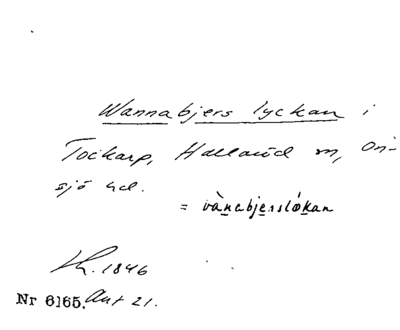 Wannabjers lyckan i
Tockarp, Hallaröd sn, On-
sjö hd.
= vànabjersløkan
1846
Nr 6165. Ant 21.